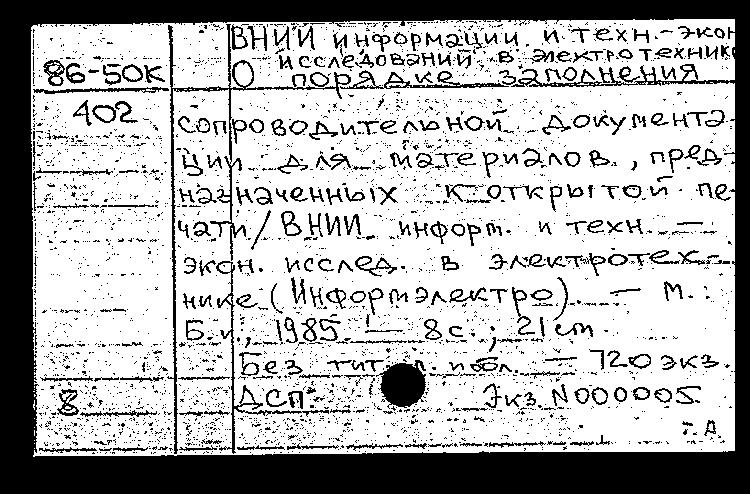 ВНИИ информации и техн.-экон
исследований в электротехнике
86-50к О порядке заполнения
402
сопроводительной документа-
ции для материалов, пред-
назначенных к открытой пе-
чати/ВНИИ информ. и техн. —
экон. исслед. в электротех-
нике (Информэлектро). — М.:
Б.и., 1985. — 8 с.; 21 cm.
Без тит. л. и обл. — 720 экз.
8 ДСП. Экз N000005
т. д